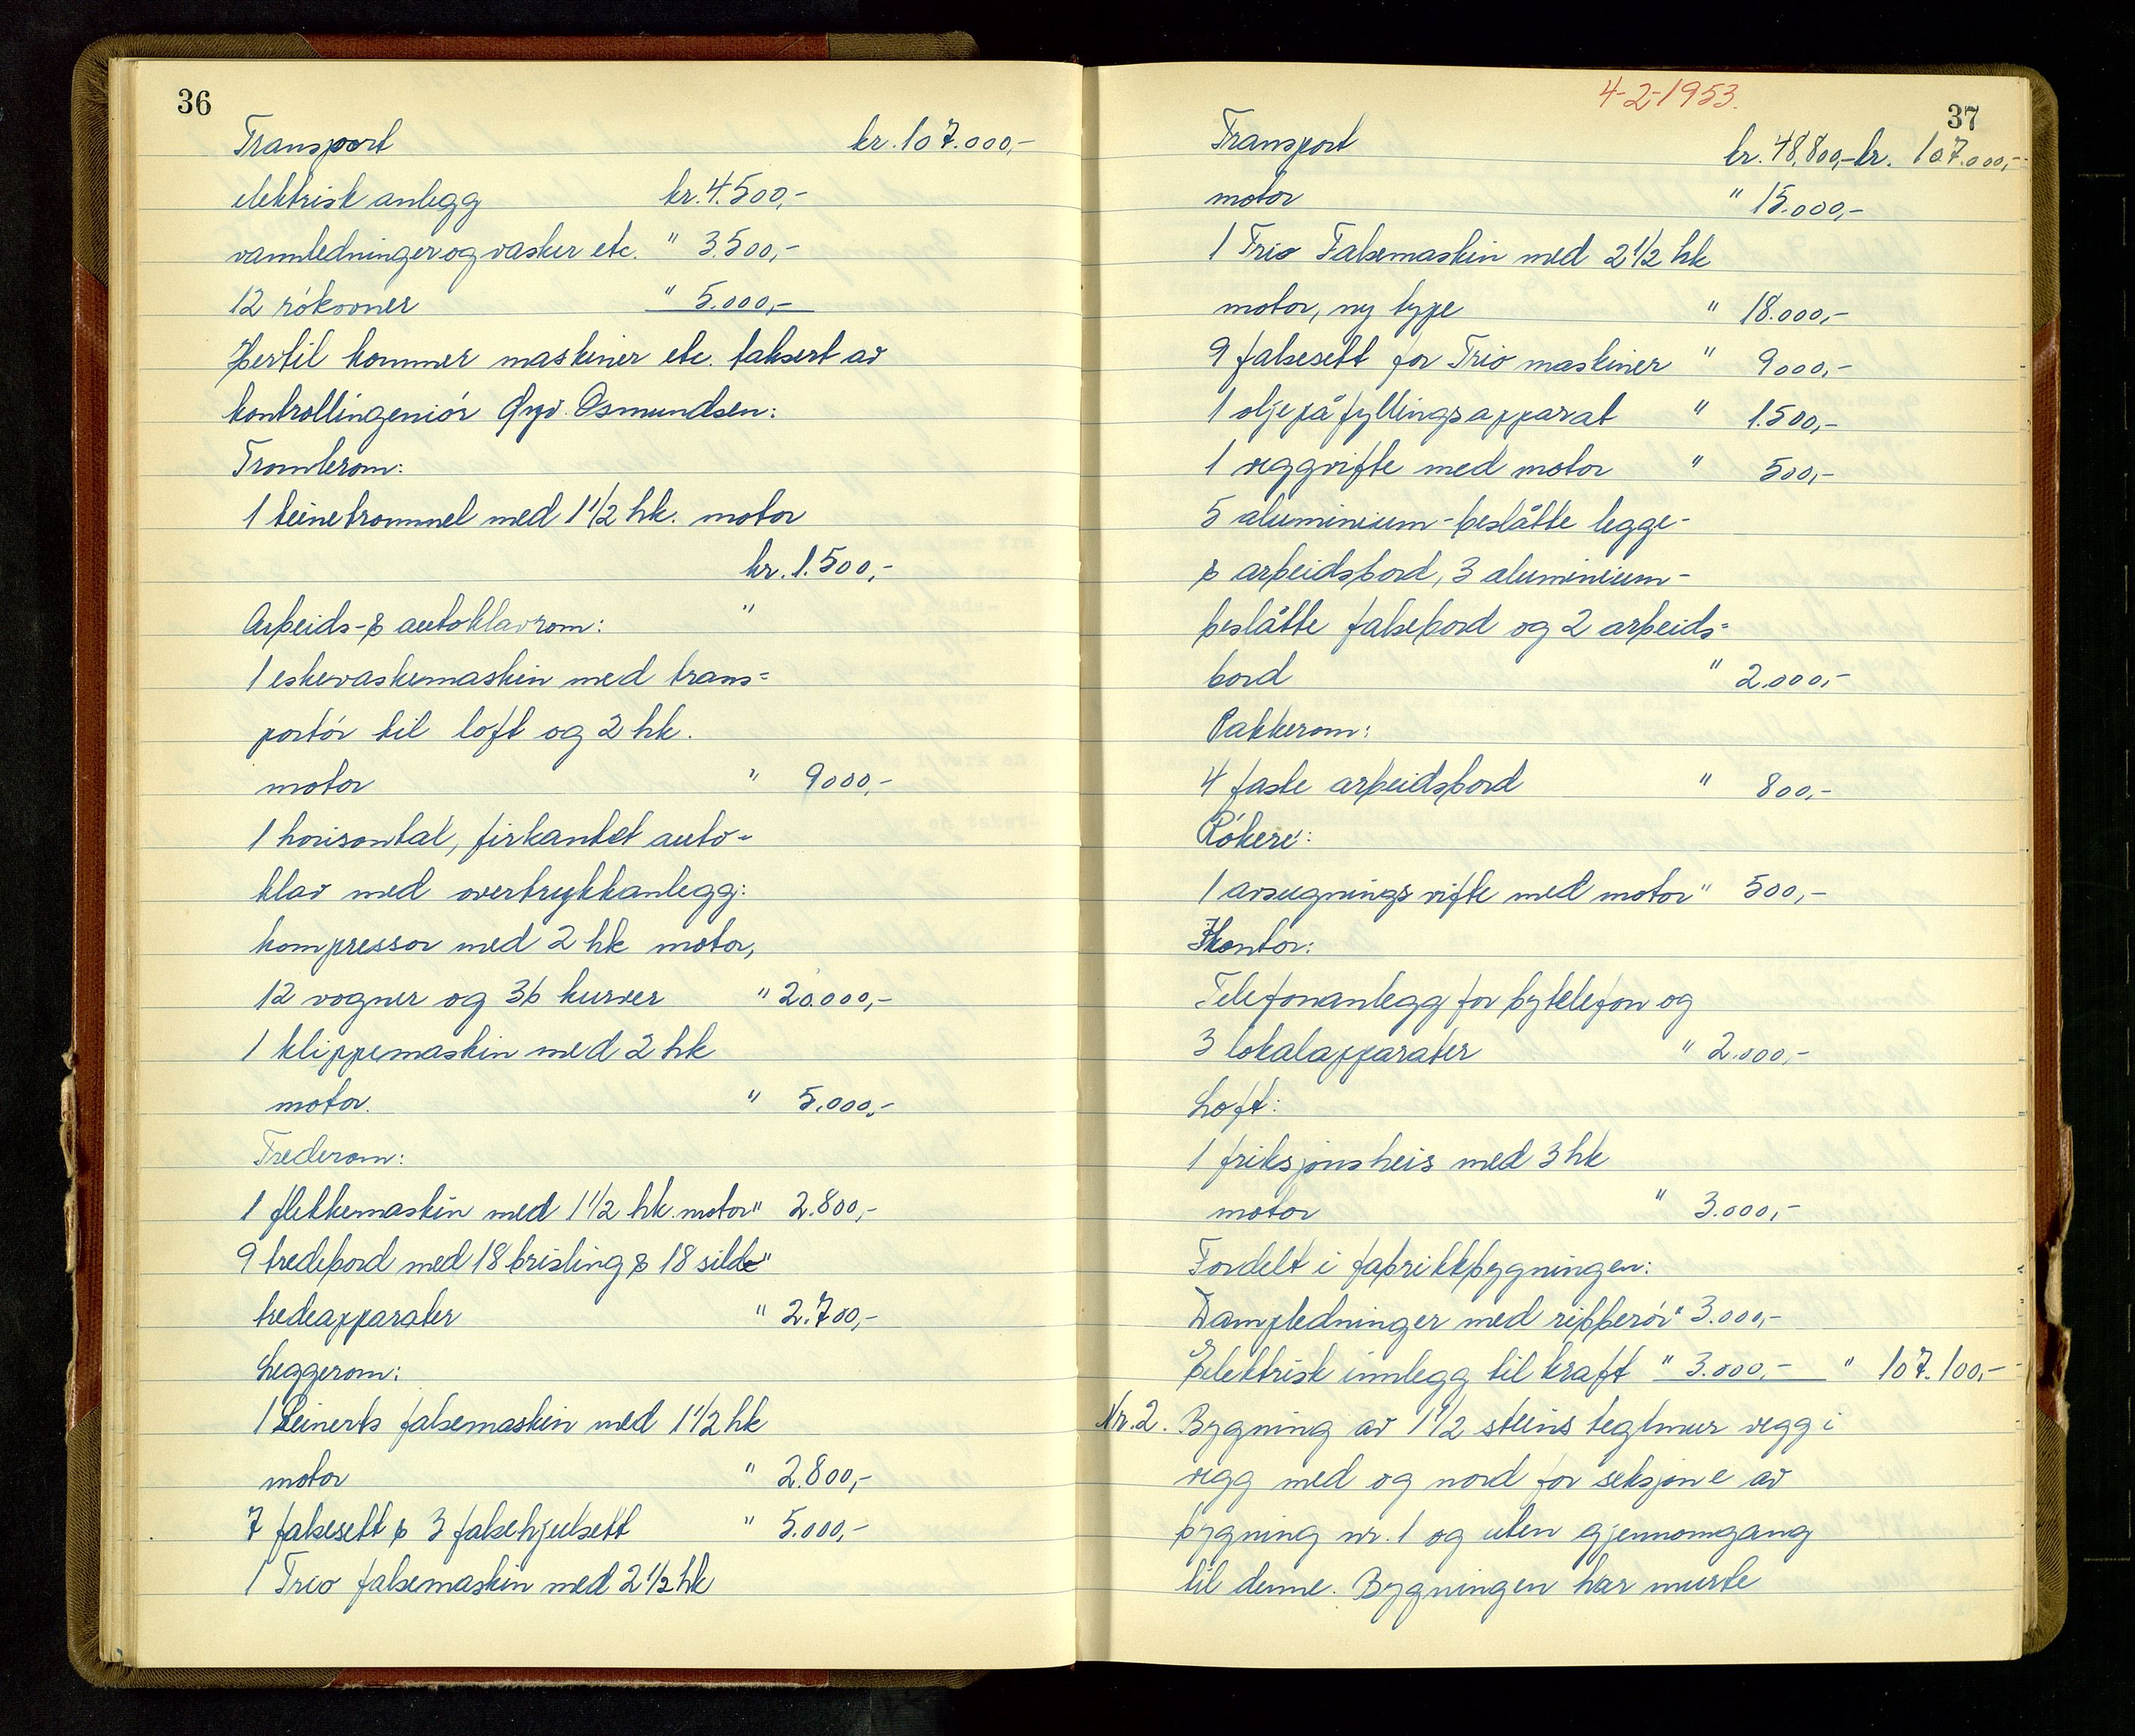 36
Transport kr. 107.000,-
elektrisk anlegg kr. 4.500,-
vannledninger og vasker etc. " 3.500,-
12 rökovner " 5.000,-
Hertil kommer maskiner etc. taksert av
kontrollingeniör Øyv. Osmundsen:
Tromlerom:
1 teinetrommel med 1 1/2 hk. motor
kr. 1.500,-
Arbeids- & autoklavrom: "
1 eskevaskemaskin med trans=
portör til loft og 2 hk.
motor " 9000,-
1 horisontal, firkantet auto=
klav med overtrykkanlegg:
kompressor med 2 hk motor,
12 vogner og 36 kurver " 20.000,-
1 klippemaskin med 2 hk
motor. " 5.000,-
Trederom:
1 flekkemaskin med 1 1/2 hk. motor " 2.800,-
9 tredebord med 18 brisling & 18 silde "
tredeapparater " 2.700,-
Leggerom:
1 Leinerts falsemaskin med 1 1/2 hk
motor " 2.800,-
7 falsesett & 3 falsehjulsett " 5.000,-
1 Trio falsemaskin med 2 1/2 hk
4-2-1953.
37
Transport kr. 48,800,- kr. 107.000,-
motor " 15.000,-
1 Trio Falsemaskin med 2 1/2 hk
motor, ny type " 18.000,-
9 falsesett for Trio maskiner " 9000,-
1 oljepåfyllingsapparat " 1.500,-
1 veggvifte med motor " 500,-
5 aluminium-beslåtte legge-
& arbeidsbord, 3 aluminium-
beslåtte falsebord og 2 arbeids=
bord " 2.000,-
Pakkerom:
4 faste arbeidsbord " 800,-
Rökeri:
1 avsugningsvifte med motor " 500,-
Kontor:
Telefonanlegg for bytelefon og
3 lokalapparater " 2.000,-
Loft:
1 friksjonsheis med 3 hk
motor " 3.000,-
Fordelt i fabrikkbygningen:
Dampledninger med ribberör " 3.000,-
Elektrisk innlegg til kraft " 3.000,- " 107.100,-
Nr. 2. Bygning av 1 1/2 steins teglmur vegg i
vegg med og nord for seksjon e av
bygning nr. 1 og uten gjennomgang
til denne. Bygningen har murte